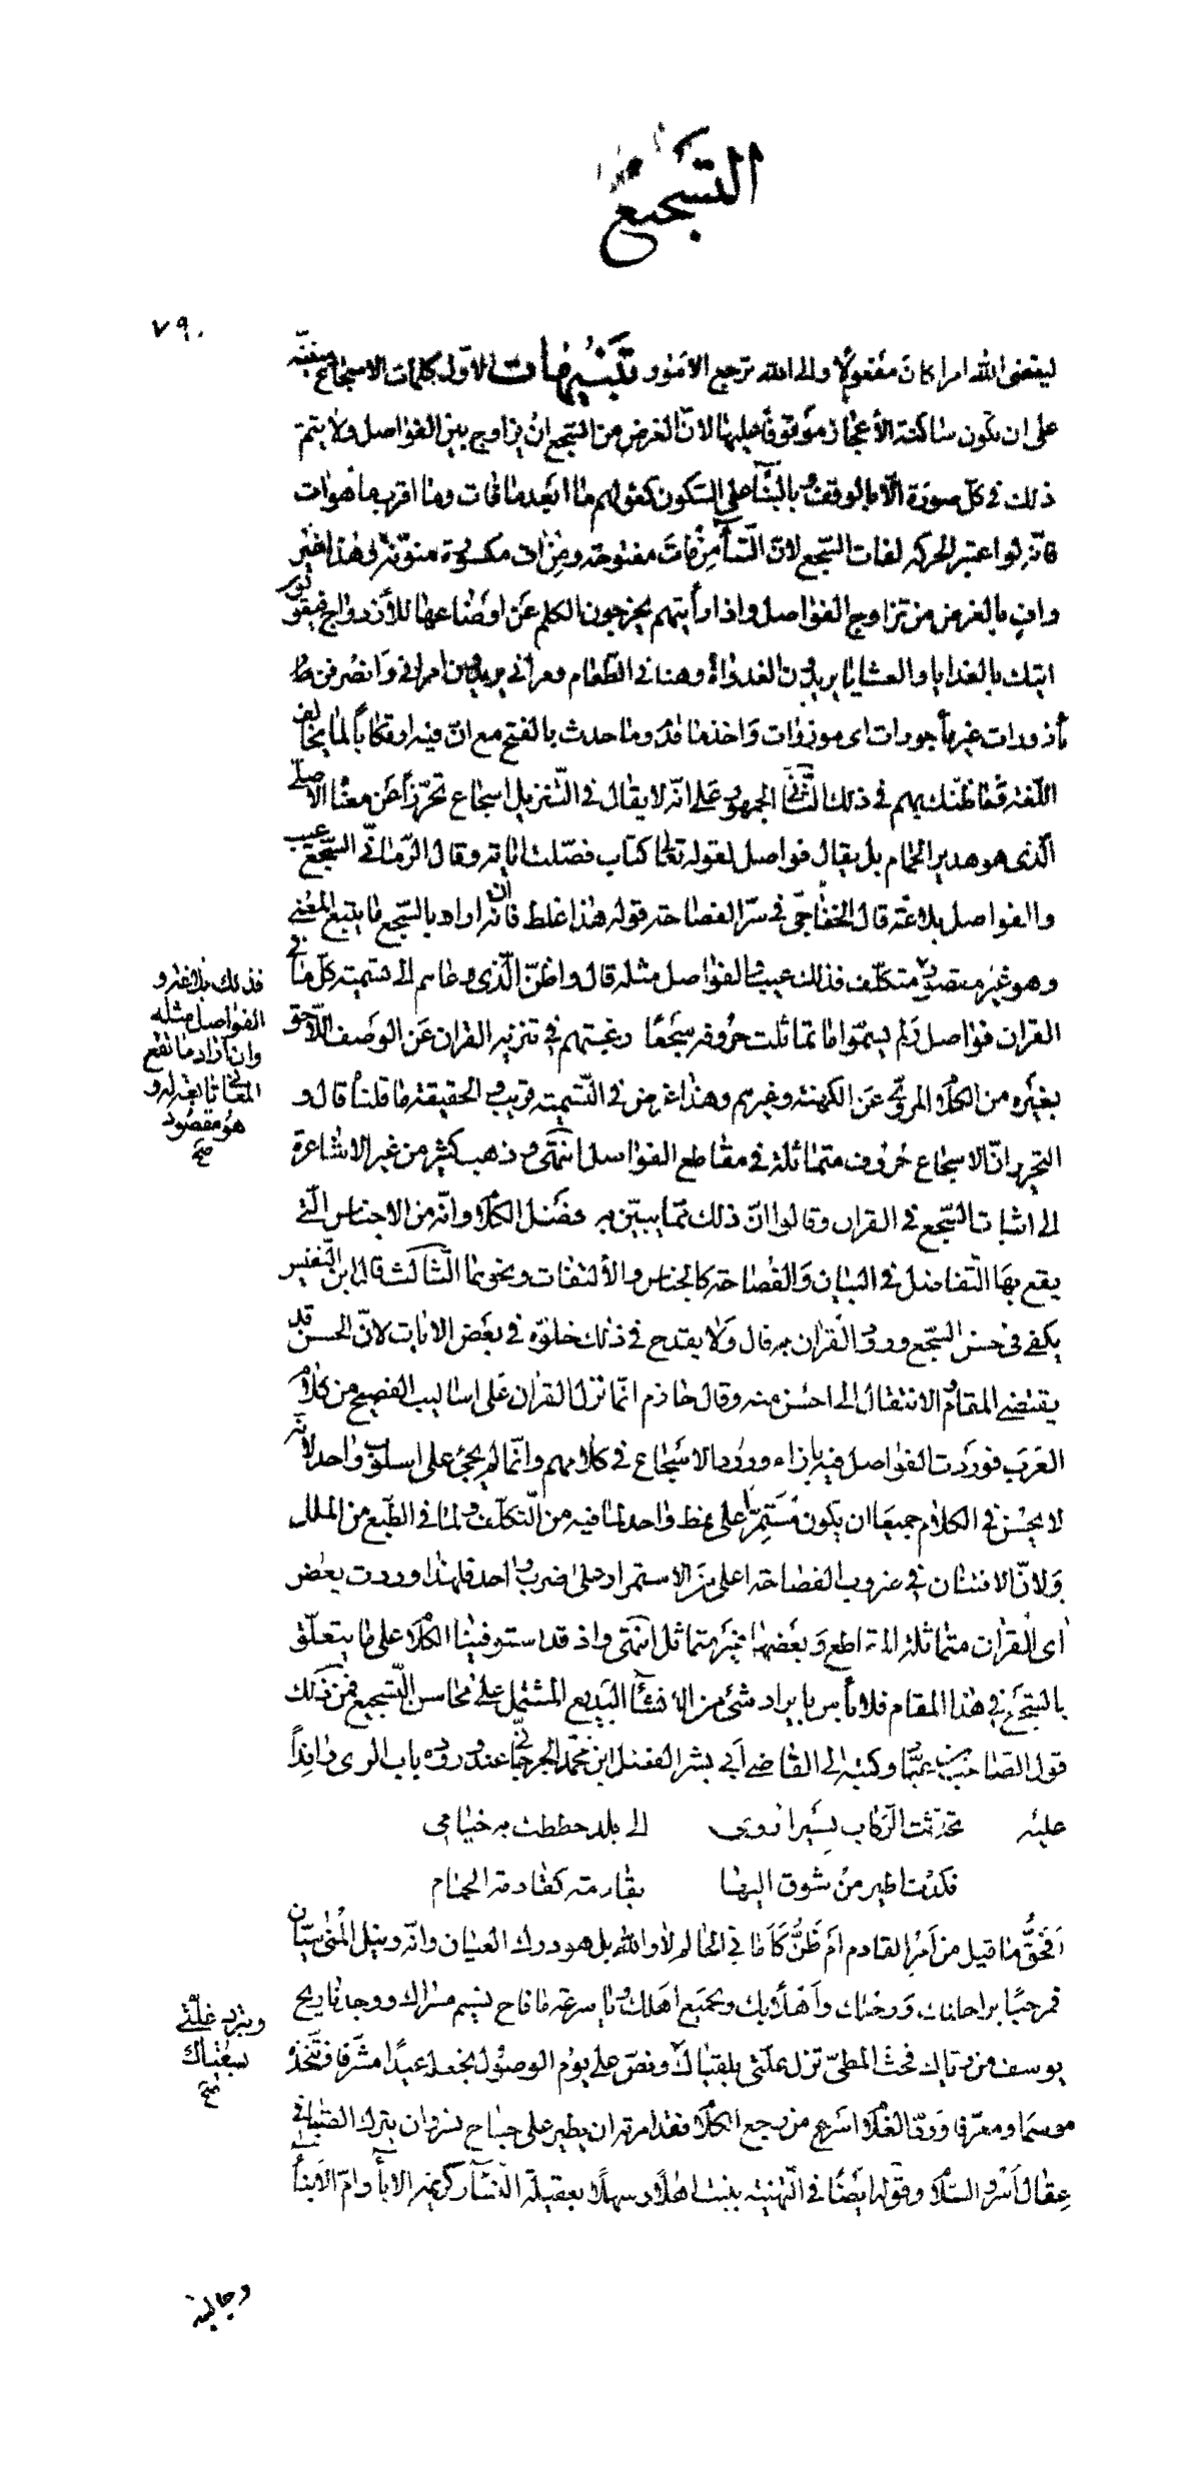 التسجيع
٧٩٠
ليقضى الله امرا كان مفعولا والى الله ترجع الامور تنبيهات الاول كلمات الاسجاع مبنيّة
على ان تكون ساكنة الأعجاز موقوفاً عليها لانّ الغرض من السّجع ان يزاوج بين الفواصل ولا يتمّ
ذلك في كلّ صورة الّا بالوقف والبنآء على السّكون كقولهم ما ابعد ما فات وما اقرب ما هوات
فانّه لو اعتبر الحركة لفات السّجع لانّ التآء من فات مفتوحة ومن ات مكسورة منوّنة وهذا غير
وافٍ بالغرض من تزاوج الفواصل واذا رأيتهم يخرجون الكلم عن اوضاعها للأزدواج فيقولون
اتيك بالغدايا والعشايا يريدون الغدواة وهنانى الطّعام ومرانى يريدون امرانى وانصرفن ما
مأزورات غير مأجورات اى موزورات واخذما قدم وما حدث بالفتح مع انّ فيه ارتكاباً لما يخالف
اللّغة فما ظنّك بهم في ذلك الثّانى الجمهور على انّه لا يقال في التّنزيل اسجاع تحرّزاً عن معناه الاصلّى
الّذى هو هدير الحمام بل يقال فواصل لقوله تعالى كتاب فصّلت اياته وقال الرّمانّى السّجع عيب
والفواصل بلاغة قال الخفاجّى في سرّ الفصاحة قوله هذا غلط فانّه ان اراد بالسّجع ما يتبع المعنى
وهو غير مقصود متكلّف فذلك عيب والفواصل مثله قال واظنّ الّذى دعاهم الى تسمية كلّ ما في
القران فواصل ولم يسمّوا ما تماثلت حروفه سجعًا رغبتهم في تنزيه القران عن الوصف اللّاحق
بغيره من الكلام المروىّ عن الكهنة وغيرهم وهذا غرض في التّسمية قريب والحقيقة ما قلناه قال و
التحرير انّ الاسجاع حروف متماثلة في مقاطع الفواصل انتهى وذهب كثير من غير الاشاعرة
الى اثبات السّجع في القران وقالوا انّ ذلك ممّا يبيّن به فضل الكلام وانّه من الاجناس الّتى
يقع بها التّفاضل في البيان والفصاحة كالجناس والألتفات ونحوهما الثّالث قال ابن النّفيس
يكفى في حسن السّجع ورود القران به قال ولا يقدح في ذلك خلوّه في بعض الايات لانّ الحسن قد
يقتضى المقام الانتقال الى احسن منه وقال حازم انّما نزل القران على اساليب الفصيح من كلام
العرب فوردت الفواصل فيه بإزاء ورود الاسجاع في كلامهم وانّما لم يجئ على اسلوب واحد لانّه
لا يحسن في الكلام جميعا ان يكون مستمرّا على نمط واحد لما فيه من التّكلّف ولما في الطّبع من الملل
ولانّ الافتنان في ضروب الفصاحة اعلى من الاستمرار على ضرب واحد فلهذا وردت بعض
اى القران متماثلة المقاطع وبعضها غير متماثل انتهى واذ قد استوفينا الكلام على ما يتعلّق
بالسّجع في هذا المقام فلا بأس بايراد شئ من الانشآء البديع المشتمل على محاسن التّسجيع فمن ذلك
قول الصّاحب بن عبّاد وكتبه الى القاضى أبى بشر الفضل ابن محمّد الجرجانّى عند وروده باب الرى وافداً
عليه تحدّثت الرّكاب بسير اروى الى بلد حططت به خيامي
فكدت اطير من شوق اليها بقادمة كقادمة الحمام
أفحقٌّ ما قيل من أمر القادم أم ظنٌّ كأمانى الحالم لا والله بل هو درك العيان وانّه ونيل المنى سيّان
فمرحبًا براحلتك ورحلك وأهلاً بك وبجميع اهلك ويا سرعة ما فاح نسيم مسراك ووجدنا ريح
يوسف من ريّاك فحثّ المطىّ تزل علّتى بلقياك ونصّ على يوم الوصول نجعله عيدًا مشرفا ونتّخذه
موسما ومعرّفا وردّ الغلام اسرع من رجع الكلام فقد امرته ان يطير على جناح نسر وان يترك الصّبا في
عقال أسر والسّلام وقوله ايضًا في التّهنية ببنت اهلًا وسهلًا بعقيلة النّسآء وكريمة الابآء وامّ الابنآء
فذلك بلاغة و
الفواصل مثله
وان اراد ما تقع
المعانى تابعة له و
هو مقصود
صح
وتبرد غلّتى
بسقياك
صح
وجالبة